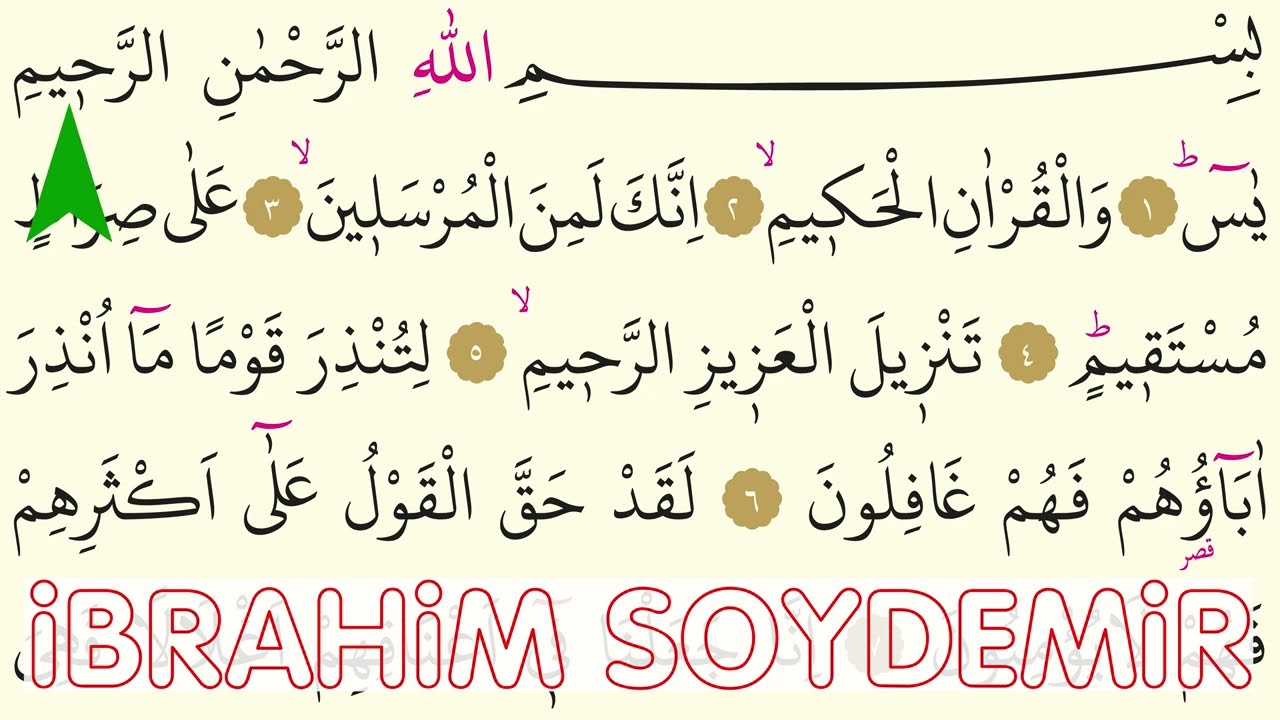 بِسْمِ اللّٰهِ الرَّحْمٰنِ الرَّحٖيمِ
يٰسٓ ۜ ﴿١﴾ وَالْقُرْاٰنِ الْحَكٖيمِ ۙ ﴿٢﴾ اِنَّكَ لَمِنَ الْمُرْسَلٖينَ ۙ ﴿٣﴾ عَلٰى صِرَاطٍ
مُسْتَقٖيمٍ ؕ ﴿٤﴾ تَنْزٖيلَ الْعَزٖيزِ الرَّحٖيمِ ۙ ﴿٥﴾ لِتُنْذِرَ قَوْمًا مَٓا اُنْذِرَ
اٰبَٓاؤُ۬هُمْ فَهُمْ غَافِلُونَ ﴿٦﴾ لَقَدْ حَقَّ الْقَوْلُ عَلٰٓى اَكْثَرِهِمْ
قصر
İBRAHİM SOYDEMİR